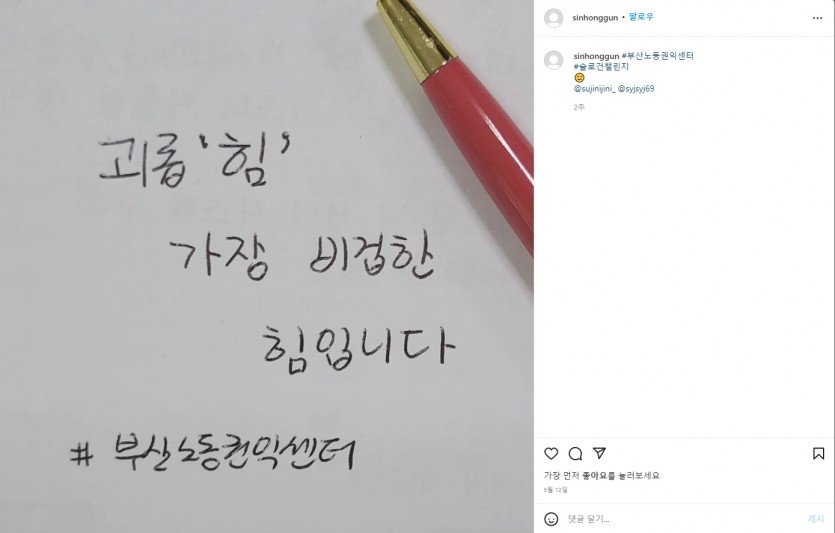 괴롭'힘'
가장 비겁한
힘입니다
# 부산노동권익센터
sinhonggun • 팔로우
sinhonggun #부산노동권익센터
#슬로건챌린지
@sujinijini_ @syjsyj69
2주
가장 먼저 좋아요를 눌러보세요
5월 12일
댓글 달기...
게시